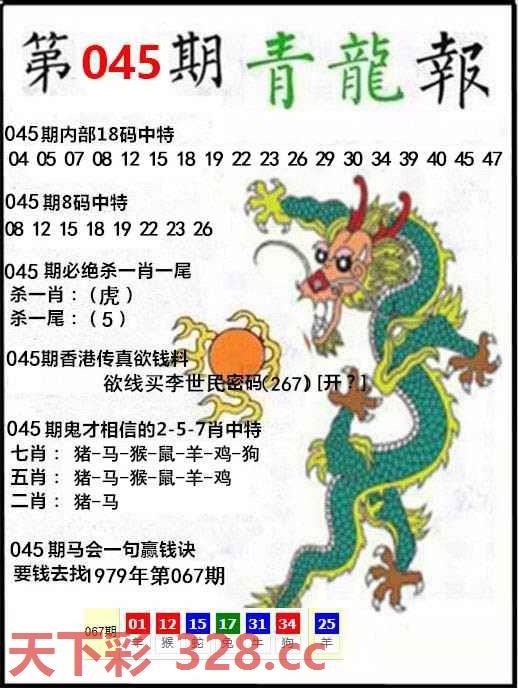 第045期青龍報
045期内部18码中特
04 05 07 08 12 15 18 19 22 23 26 29 30 34 39 40 45 47
045期8码中特
08 12 15 18 19 22 23 26
045期必绝杀一肖一尾
杀一肖：(虎)
杀一尾：(5)
045期香港传真欲钱料
欲线买李世民密码(267)[开?]
045期鬼才相信的2-5-7肖中特
七肖：猪-马-猴-鼠-羊-鸡-狗
五肖：猪-马-猴-鼠-羊-鸡
二肖：猪-马
045期马会一句赢钱诀
要钱去找1979年第067期
067期 01 12 15 17 31 34 25
羊 猴 蛇 兔 牛 狗 羊
天下彩 328.cc